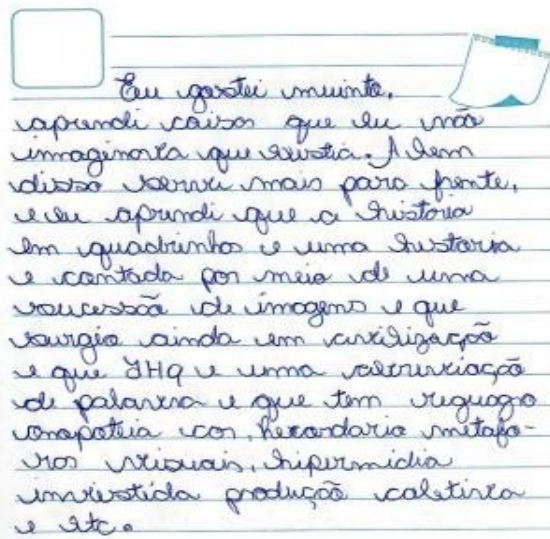 Eu gostei muinto,
aprendi coisas que eu não
immaginava que existia. Alem
disso servir mais para frente,
e eu aprendi que a historia
em quadrinhos e uma historia
e contada por meio de uma
soucessõa de imagens e que
sourgio ainda em civilização
e que JHQ e uma abreviação
de palavra e que tem
onopoteia cor, metafo-
ros visuais, hipermidia
invistida produção coletiva
e etc.